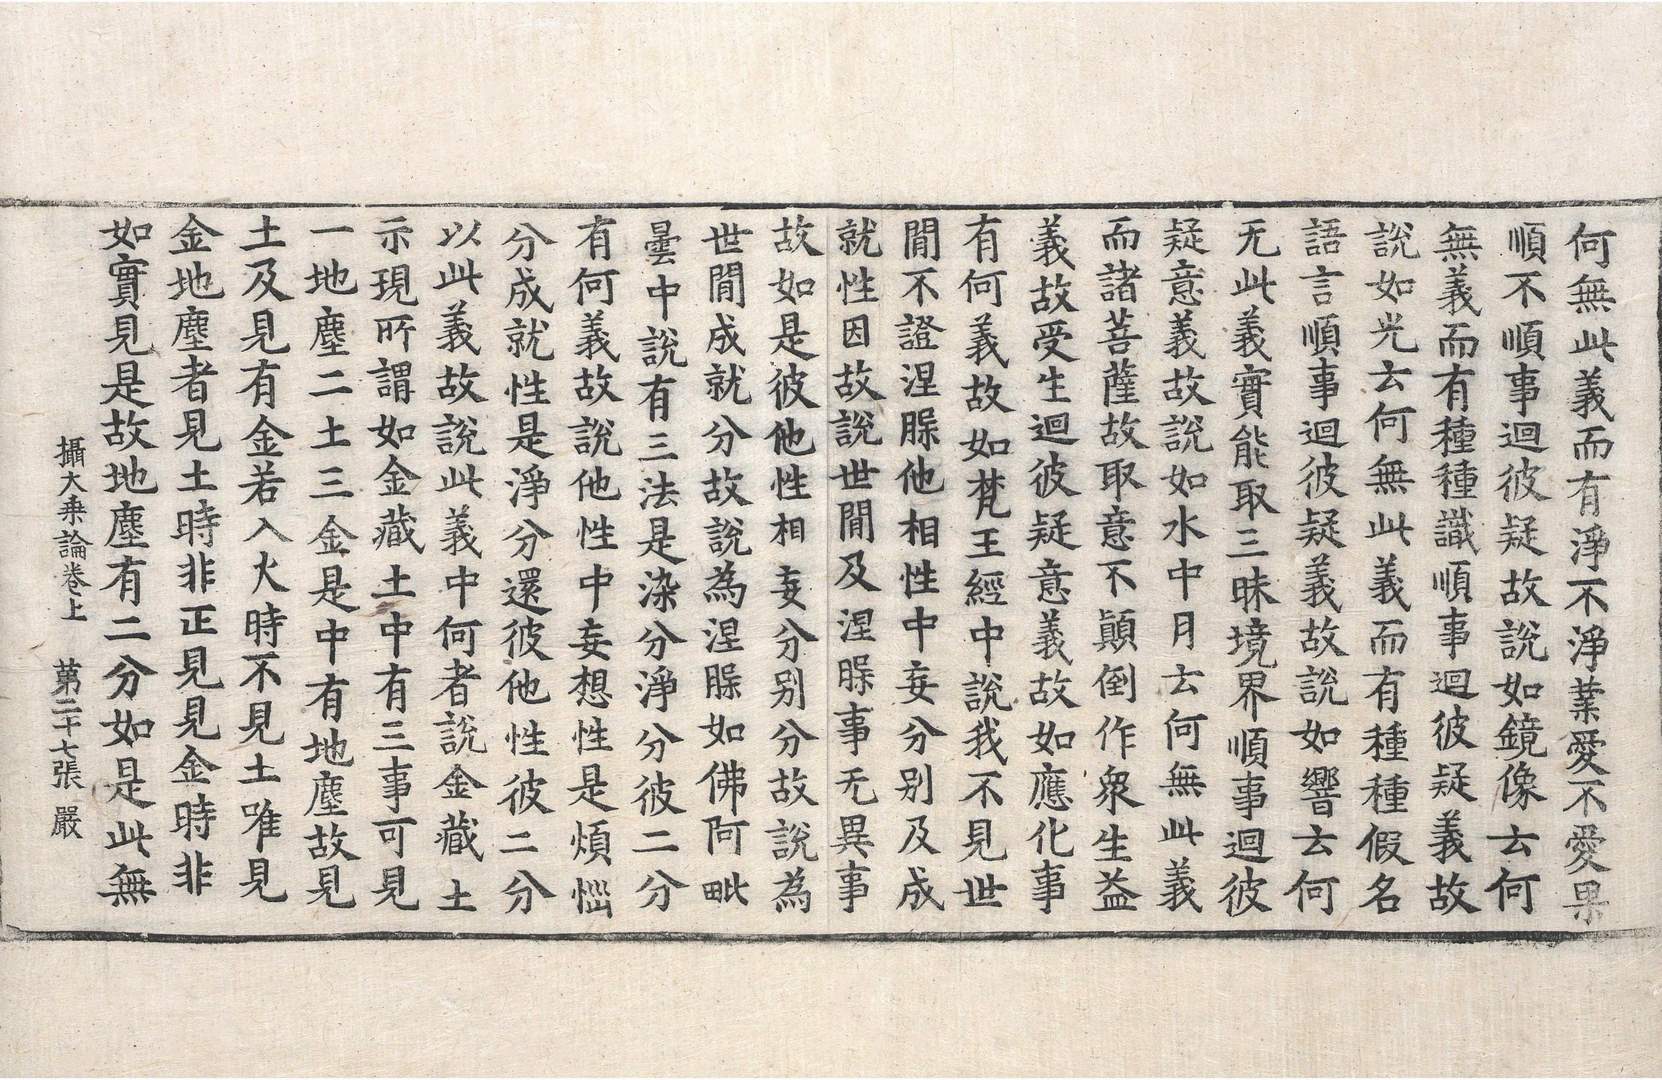 何無此義而有淨不淨業愛不愛果
順不順事迴彼疑故說如鏡像去何
無義而有種種識順事迴彼疑義故
說如光去何無此義而有種種假名
語言順事迴彼疑義故說如響去何
无此義實能取三昧境界順事迴彼
疑意義故說如水中月去何無此義
而諸菩薩故取意不顛倒作衆生益
義故受生迴彼疑意義故如應化事
有何義故如梵王經中說我不見世
間不證涅䏶他相性中妄分別及成
就性因故說世間及涅䏶事无異事
故如是彼他性相妄分别分故說為
世間成就分故說為涅䏶如佛阿毗
曇中說有三法是染分淨分彼二分
有何義故說他性中妄想性是煩惱
分成就性是淨分還彼他性彼二分
以此義故說此義中何者說金藏土
示現所謂如金藏土中有三事可見
一地塵二土三金是中有地塵故見
土及見有金若入火時不見土唯見
金地塵者見土時非正見見金時非
如實見是故地塵有二分如是此無
攝大乘論卷上 第二十七張 嚴